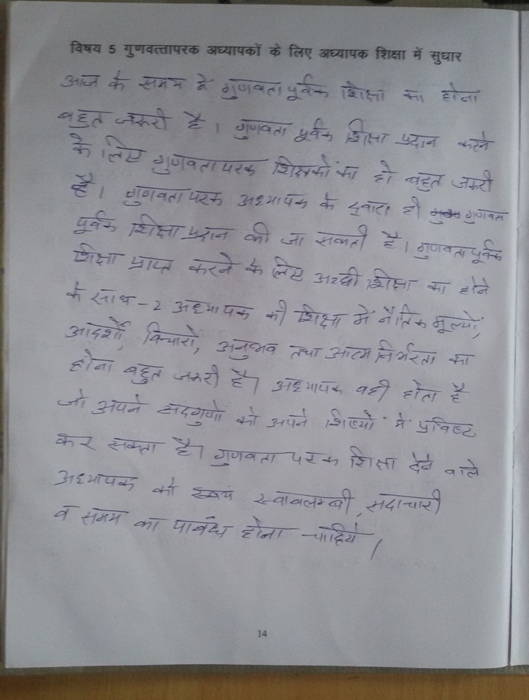 विषय 5 गुणवत्तापरक अध्यापकों के लिए अध्यापक शिक्षा में सुधार
आज के समय में गुणवता पूर्वक शिक्षा का होना
बहुत जरूरी है। गुणवता पूर्वक शिक्षा प्रदान करने
के लिए गुणवता परक शिक्षकों का हो बहुत जरूरी
है। गुणवता परक अध्यापक के द्वारा ही गुणवता
पूर्वक शिक्षा प्रदान की जा सकती है। गुणवता पूर्वक
शिक्षा प्राप्त करने के लिए अच्छी शिक्षा का होने
के साथ-2 अध्यापक की शिक्षा में नैतिक मूल्यों,
आदर्शों, विचारो, अनुभव तथा आत्म निर्भरता का
होना बहुत जरूरी है। अध्यापक वही होता है
जो अपने सदगुणो को अपने शिष्यों में प्रविष्ट
कर सकता है। गुणवता परक शिक्षा देने वाले
अध्यापक को स्वयं स्वावलम्बी, सदाचारी
व समय का पाबंध होना चाहिये।
14